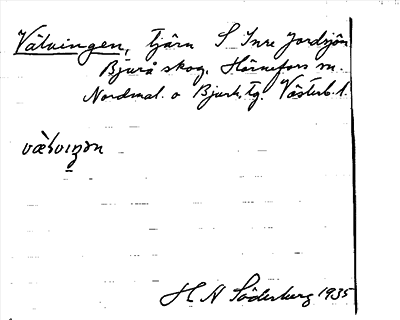 Välvingen, tjärn S Inre Jordsjön
Bjurå skog. Hörnefors sn.
Nordmal. o Bjurh. tg. Västerb. l.
H N Söderberg 1935